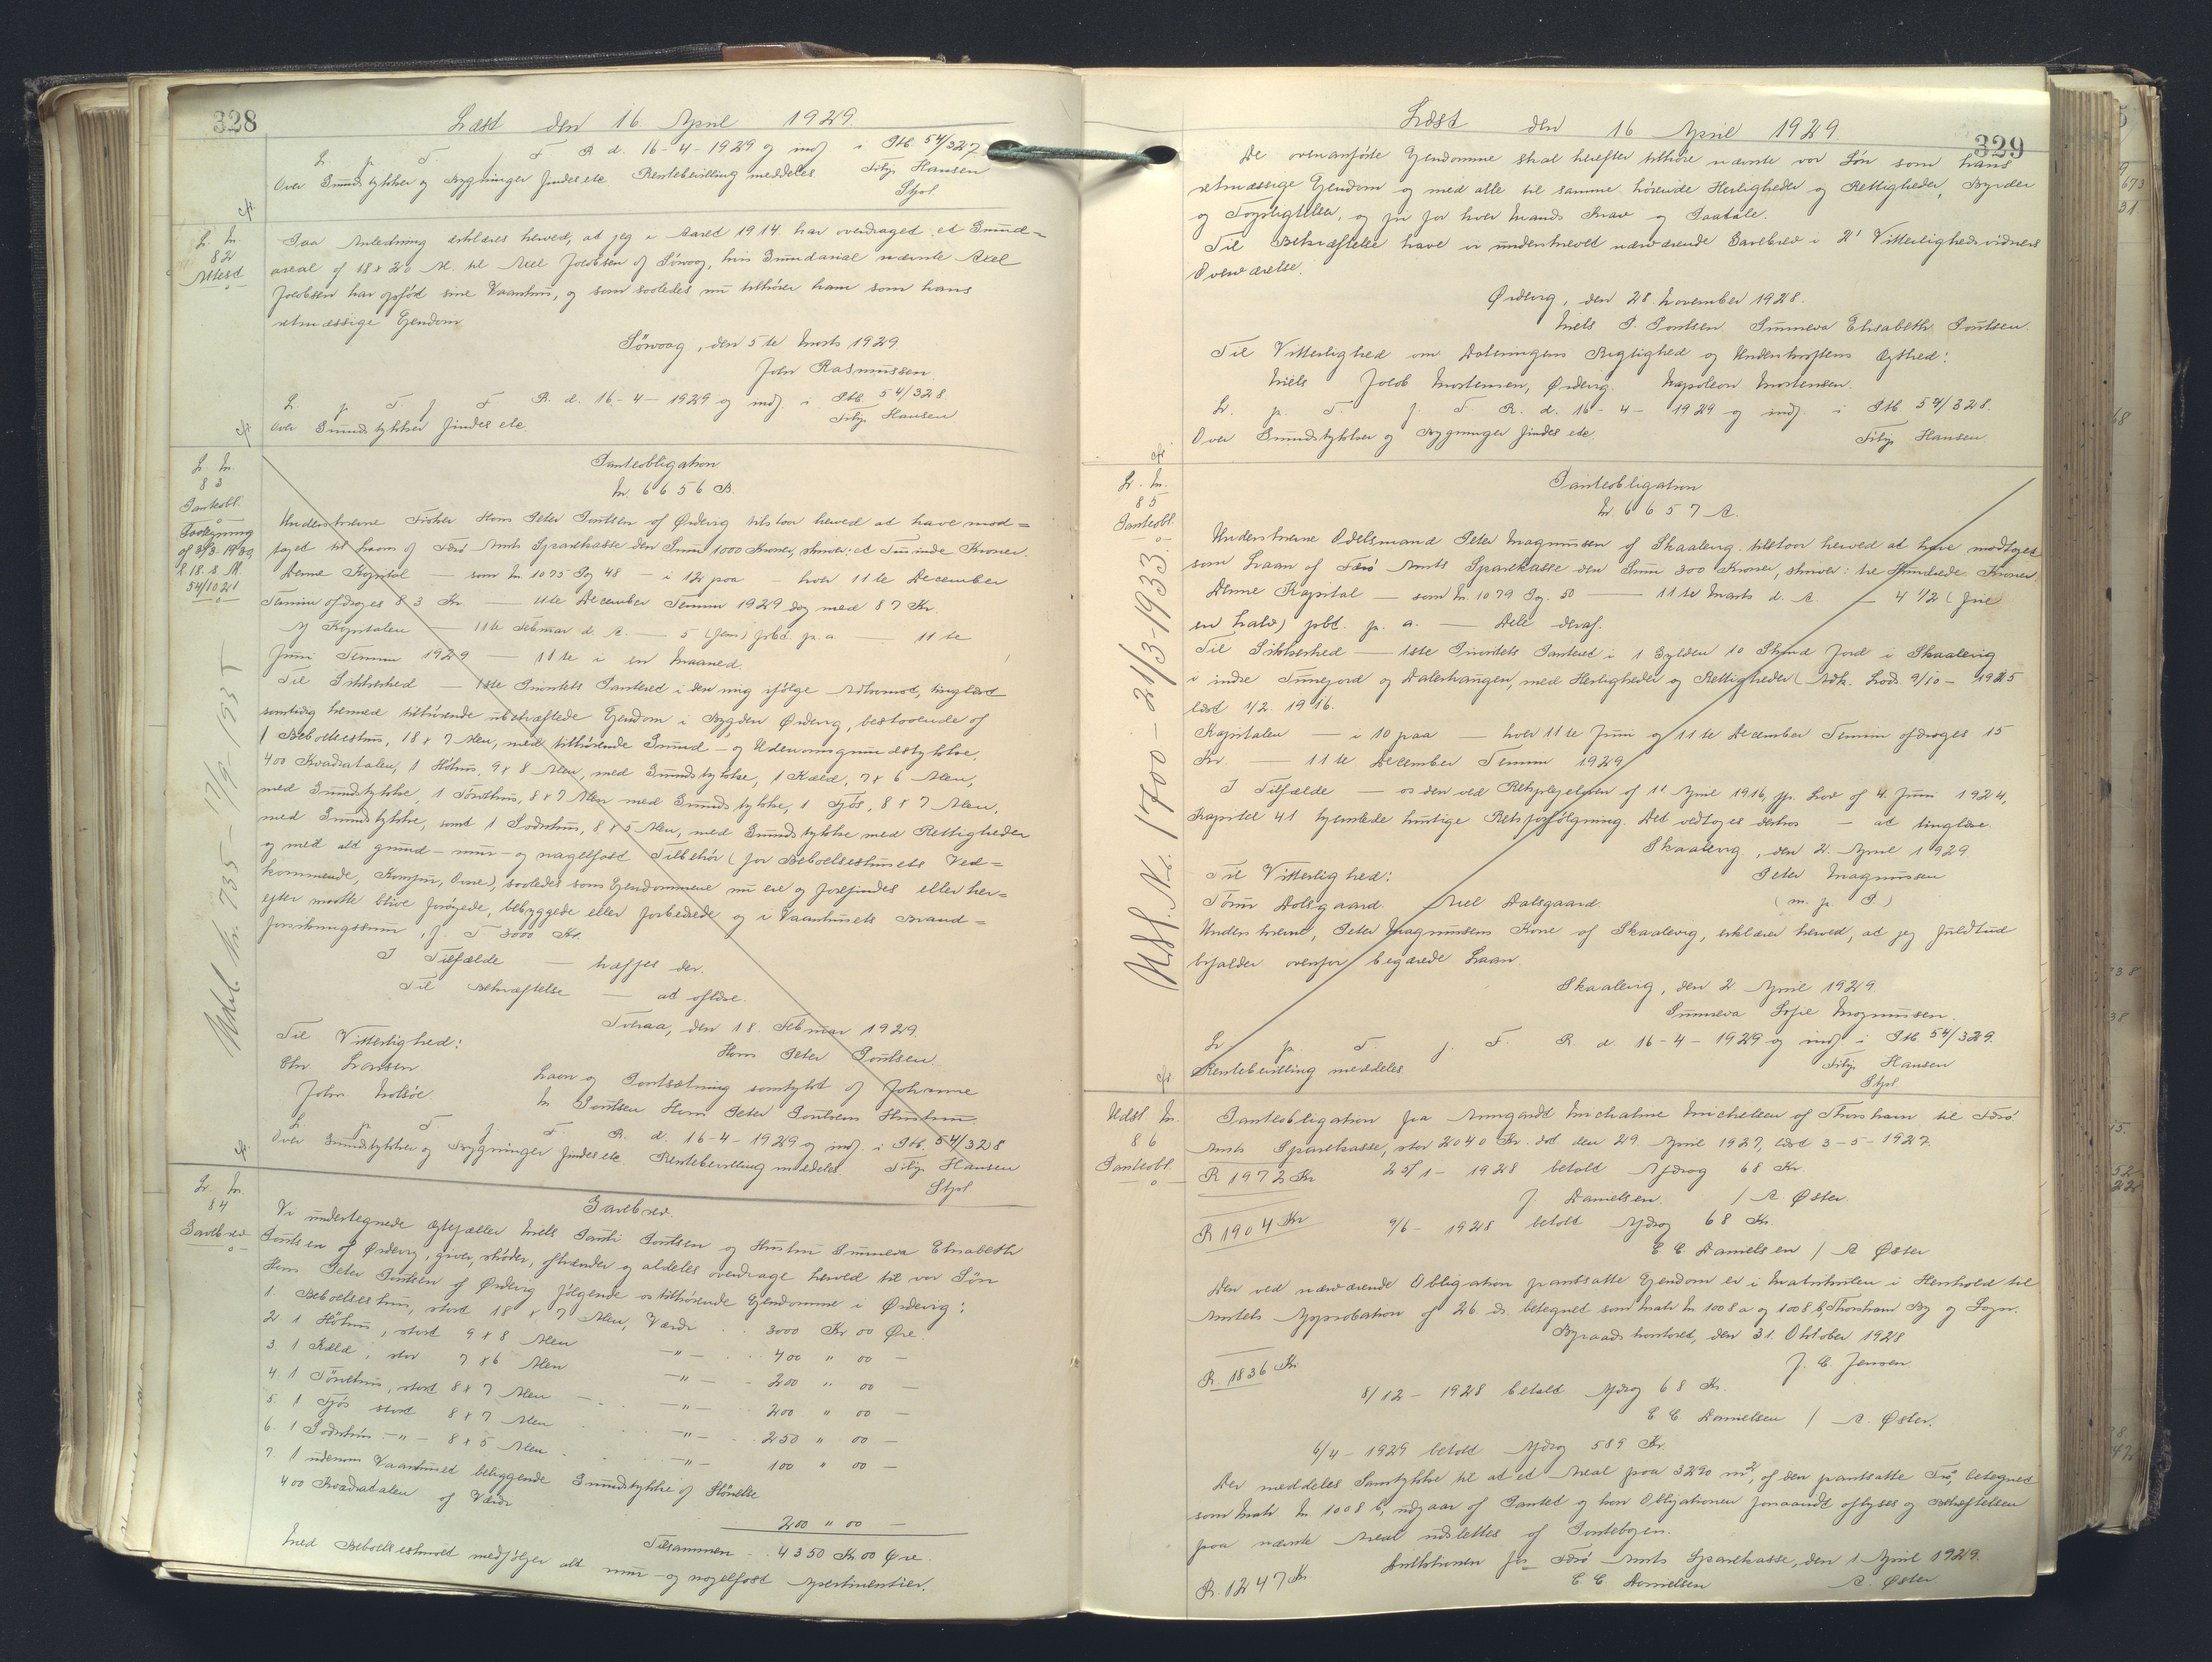 328
Læst den 16 April 1929.
L. p. T. f. F. R. d. 16-4-1929 og indf. i Ptb. 54/327
Over Grundstykker og Bygninger findes etc. Rentebevilling meddeles Filip Hansen
Stfol.
cfr.
L. Nr.
82
Attest
Paa Anledning erklæres herved, at jeg i Aaret 1914 har overdraget et Grund=
areal af 18 x 20 Al. til Axel Jacobsen af Sörvaag, hvis Grundareal nævnte Axel
Jacobsen har opförd sine Vaanhus, og som saaledes nu tilhörer ham som hans
retmæssige Ejendom
Sörvaag, den 5te Marts 1929.
John Rasmussen
L. p. T. f. F. R. d. 16-4-1929 og indf. i Ptb. 54/328
Over Grundstykker findes etc. Filip Hansen
cfr.
L. Nr.
83
Panteobl.
Paategning
af 3/3-1939
54/1021
Panteobligation
Nr. 6656 B.
Underskrevne Fisker Hans Peter Poulsen af Ördevig tilstaar herved at have mod=
taget til Laans af Færö Amts Sparekasse den Sum 1000 Kroner, skriver: et Tusinde Kroner.
Denne Kapital — som Nr 1075 Pag 48 — i 12 paa — hver 11te December
Termin afdrages 83 Kr. — 11te December Termin 1929 dog med 87 Kr.
Af Kapitalen — 11te Februar d. A. — 5 (fem) pCt. p. a. — 11te
Juni Termin 1929 — 11te i en Maaned.
Til Sikkerhed — 1ste Prioritets Panteret i den mig ifölge Adkomst, tinglæst
samtidig hermed tilhörende ubehæftede Ejendom i Bygden Ördevig, bestaaende af
1 Beboelseshus, 18 x 7 Alen, med tilhörende Grund- og Udenomsgrundstykke,
400 Kvadratalen, 1 Höhus, 9 x 8 Alen, med Grundstykke, 1 Kæld, 7 x 6 Alen,
med Grundstykke, 1 Törvehus, 8 x 7 Alen med Grundstykke, 1 Fjós, 8 x 7 Alen,
med Grundstykke, samt 1 Sodnhus, 8 x 5 Alen, med Grundstykke med Rettigheder
og med alt grund- mur- og nagelfast Tilbehör (for Beboelseshusets Ved=
kommende, Komfur, Ovne), saaledes som Ejendommene nu ere og forefindes eller her=
efter maatte blive forøgede, bebyggede eller forbedrede og i Vaanhusets Brand=
forsikringssum, f. T. 3000 Kr.
I Tilfælde — træffes der.
Til Bekræftelse — at aflæse.
Tvøraa, den 18. Februar 1929.
Hans Peter Poulsen.
Til Vitterlighed:
Chr Larsen.
John Nolsöe.
Laan og Pantsætning samtykt af Johanne
M Poulsen Hans Peter Poulsens Hustru.
L. p. T. f. F. R. d. 16-4-1929 og indf. i Ptb. 54/328
Over Grundstykker og Bygninger findes etc. Rentebevilling meddeles Filip Hansen
Stfol
cfr.
Udsl. Nr. 735 - 17/9-1935
L. Nr.
84
Gavebrev
Gavebrev.
Vi undertegnede Ægtefæller Niels Pauli Poulsen og Hustru Sunneva Elisabeth
Poulsen af Ördevig, giver, skøder, afhænder og aldeles overdrage herved til vor Søn
Hans Peter Poulsen af Ördevig følgende os tilhörende Ejendomme i Ördevig:
1 Beboelseshus, stort 18 x 7 Alen, Værdi .. 3000 Kr 00 Öre.
2. 1 Höhus, stort 9 x 8 Alen —"— . . 400 " 00 —
3. 1 Kæld, stor 7 x 6 Alen —"— . . 200 " 00 —
4. 1 Törvehus, stort 8 x 7 Alen —"— . . 200 " 00 —
5. 1 Fjós stort 8 x 7 Alen —"— . . 250 " 00 —
6. 1 Sodnhus —"— 8 x 5 Alen —"— 100 " 00 —
7. 1 udenom Vaanhuset beliggende Grundstykke af Störrelse
400 Kvadratalen af Værdi
200 " 00 —
Tilsammen .. 4350 Kr 00 Øre.
Med Beboelseshuset medfölger alt mur- og nagelfast Apertinentier.
329
Læst den 16 April 1929
De ovenanförte Ejendomme skal herefter tilhöre nævnte vor Søn som hans
retmæssige Ejendom og med alle til samme hörende Herligheder og Rettigheder, Byrder
og Forpligtelser, og fri for hver Mands Krav og Paatale.
Til Bekræftelse have vi underskrevet nærværende Gavebrev i 2' Vitterlighedsvidners
Overværelse.
Ördevig, den 28. November 1928.
Niels P. Poulsen. Sunneva Elisabeth Poulsen.
Til Vitterlighed om Dateringens Rigtighed og Underskriftens Ægthed:
Niels Jacob Mortensen, Ördevig. Napoleon Mortensen.
L. p. T. f. F. R. d. 16-4-1929 og indf. i Ptb. 54/328.
Over Grundstykker og Bygninger findes etc. Filip Hansen.
cfr.
L. Nr.
85
Panteobl.
Panteobligation
Nr 6657 A.
Underskrevne Odelsmand Peter Magnussen af Skaalevig tilstaar herved at have modtaget
som Laan af Færö Amts Sparekasse den Sum 300 Kroner, skriver: tre Hundrede Kroner.
Denne Kapital — som Nr. 1079 Pag. 50 — 11te Marts d. A. — 4 1/2 (fire
en halv) pCt. p. a. — Dele deraf.
Til Sikkerhed — 1ste Prioritets Panteret i 1 Gylden 10 Skind Jord i Skaalevig
i indre Tunsjord og Dalerhaugen, med Herligheder og Rettigheder (Adk. Lods. 9/10-1915
læst 1/2. 1916.
Kapitalen — i 10 paa — hver 11te Juni og 11te December Termin afdrages 15
Kr. — 11te December Termin 1929
I Tilfælde — os den ved Retsplejeloven af 11 April 1916, jfr. Lov af 4. Juni 1924,
Kapitel 41 hjemlede hurtige Retsforfölgning. Det vedtages derhos — at tinglæse.
Skaalevig, den 2. April 1929
Til Vitterlighed: Peter Magnussen
Tönnes Dalsgaard. Axel Dalsgaard. (m. p. P.)
Underskrevne, Peter Magnussens Kone af Skaalevig, erklærer herved, at jeg fuldtud
bifalder ovenfor begærede Laan.
Skaalevig, den 2 April 1929
Sunneva Sofie Magnussen.
L. p. T. f. F. R. d. 16-4-1929 og indf. i Ptb. 54/329.
Rentebevilling meddeles Filip Hansen
Stfol
cfr
Udsl. Nr. 1700 - 21/3-1933.
Udsl Nr.
86
Panteobl.
Panteobligation fra Anngardt Michaline Michelsen af Thorshavn til Færö
Amts Sparekasse, stor 2040 Kr. dat den 29 April 1927, læst 3-5-1927.
R 1972 Kr 25/1-1928 betalt Afdrag 68 Kr
J. Danielsen / A. Øster.
R 1904 Kr 9/6-1928 betalt Afdrag 68 Kr.
C C Danielsen / A Øster
Den ved nærværende Obligation pantsatte Ejendom er i Matrikulen i Henhold til
Amtets Approbation af 26 ds. betegnet som Matr Nr 1008 a og 1008 b, Thorshavn By og Sogn.
Byraadskontoret, den 31. Oktober 1928
J. C. Jensen.
R. 1836 Kr
8/12-1928 betalt Afdrag 68 Kr.
C C Danielsen / A. Øster.
6/4-1929 betalt Afdrag 589 Kr.
Der meddeles Samtykke til at et Areal paa 3290 m², af den pantsatte Trø, betegnet
som Matr Nr 1008 b, udgaar af Pantet og kan Obligationen forsaavidt aflyses og Behæftelsen
paa nævnte Areal udslettes af Pantebogen.
Direktionen for Færö Amts Sparekasse, den 1. April 1929.
R. 1247 Kr C C Danielsen A. Øster